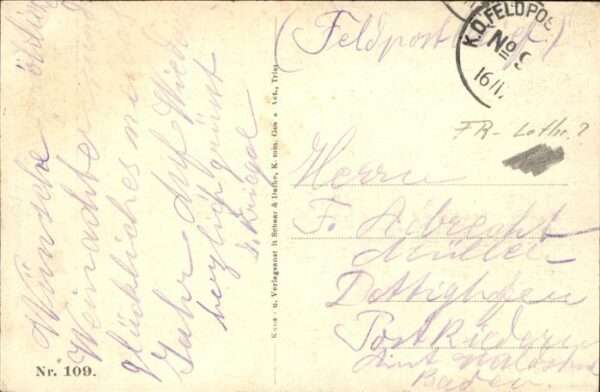 Wünsche
Weinachte
glückliches ne
Jahr Auf Wied
herzlich grüsst
Nr. 109.
Kunst- u. Verlagsanst. Schaar & Dathe, Komm. Ges. a. Akt., Trier
(Feldpost
K.D. FELDPOS
No 9
16/1
FR - Lothr.?
Herrn
F. Albrecht
Müller
Dettighofen
Post Riedern
Amt Waldshut
Baden